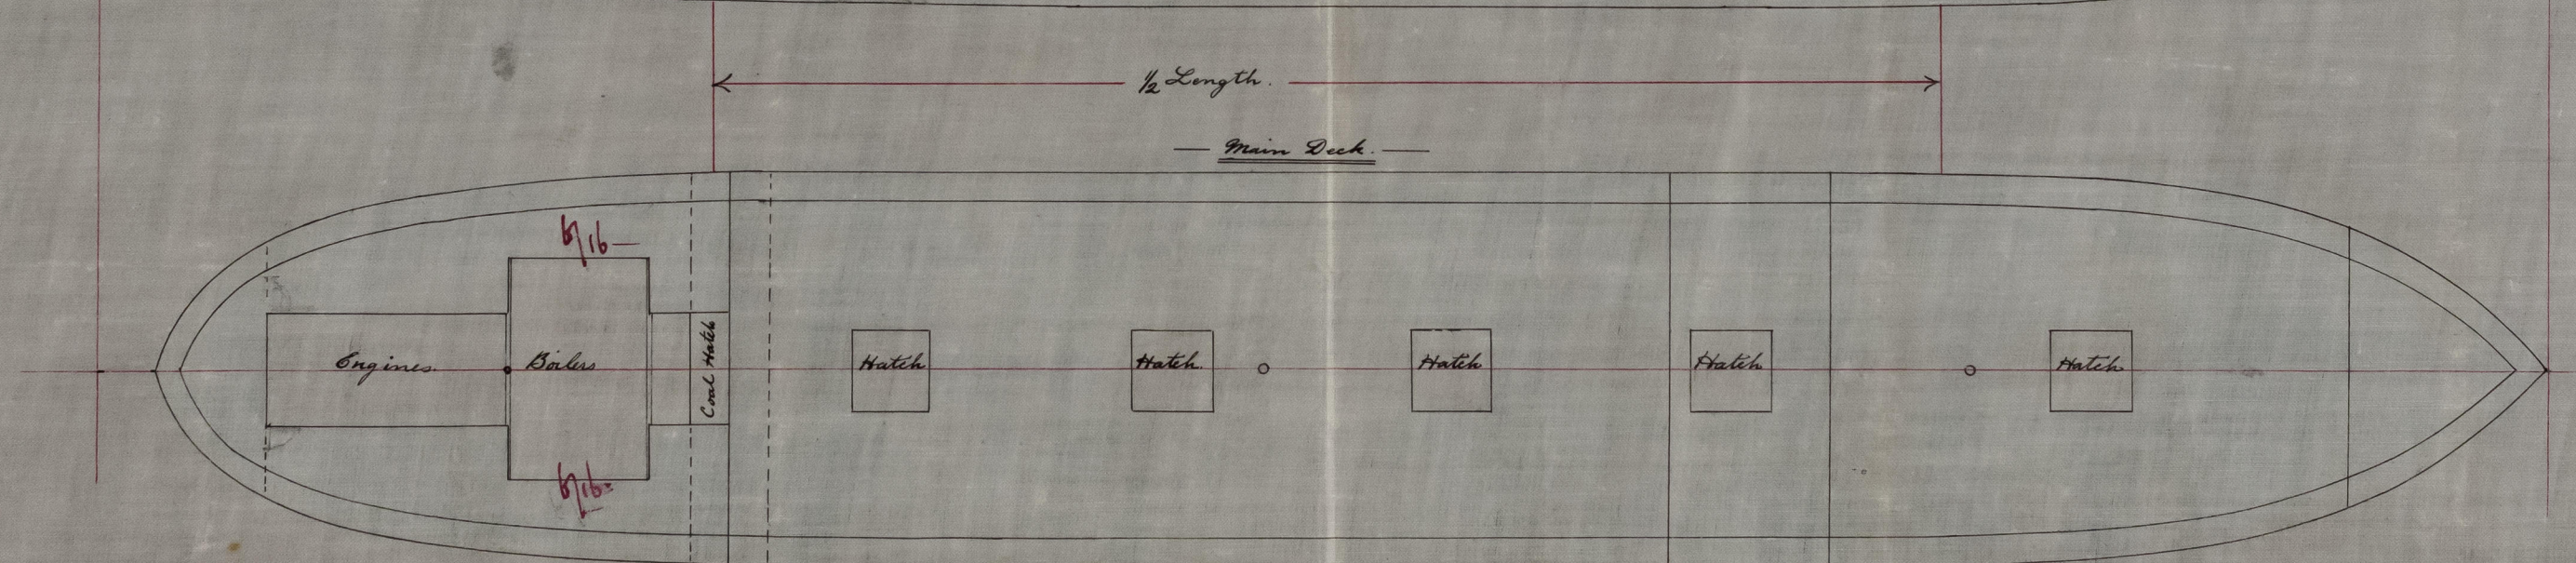 ½ Length.
Main Deck.
6/16
Engines.
Boilers
Coal Hatch
Hatch
Hatch.
Hatch
Hatch
Hatch
6/16